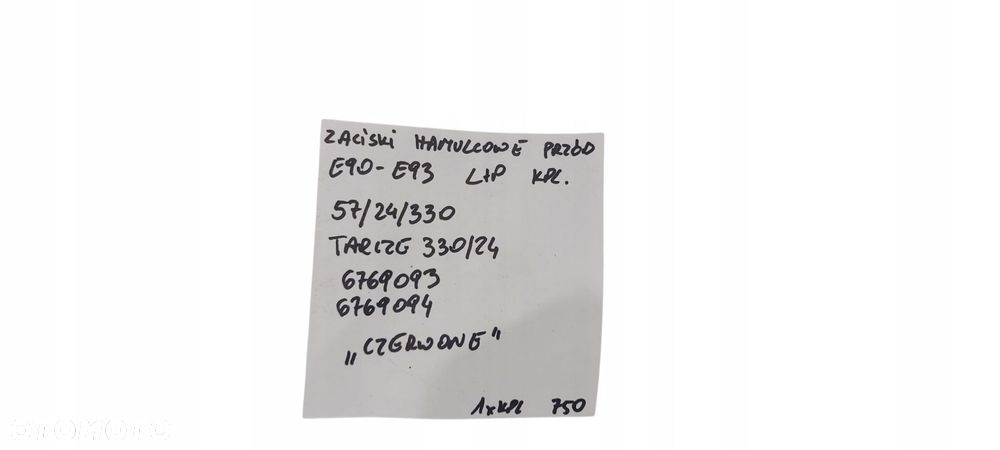 ZACISKI HAMULCOWE PRZÓD
E90-E93 L+P KPL.
57/24/330
TARCZE 330/24
6769093
6769094
„CZERWONE"
1xKPL 750
OTOMOTO